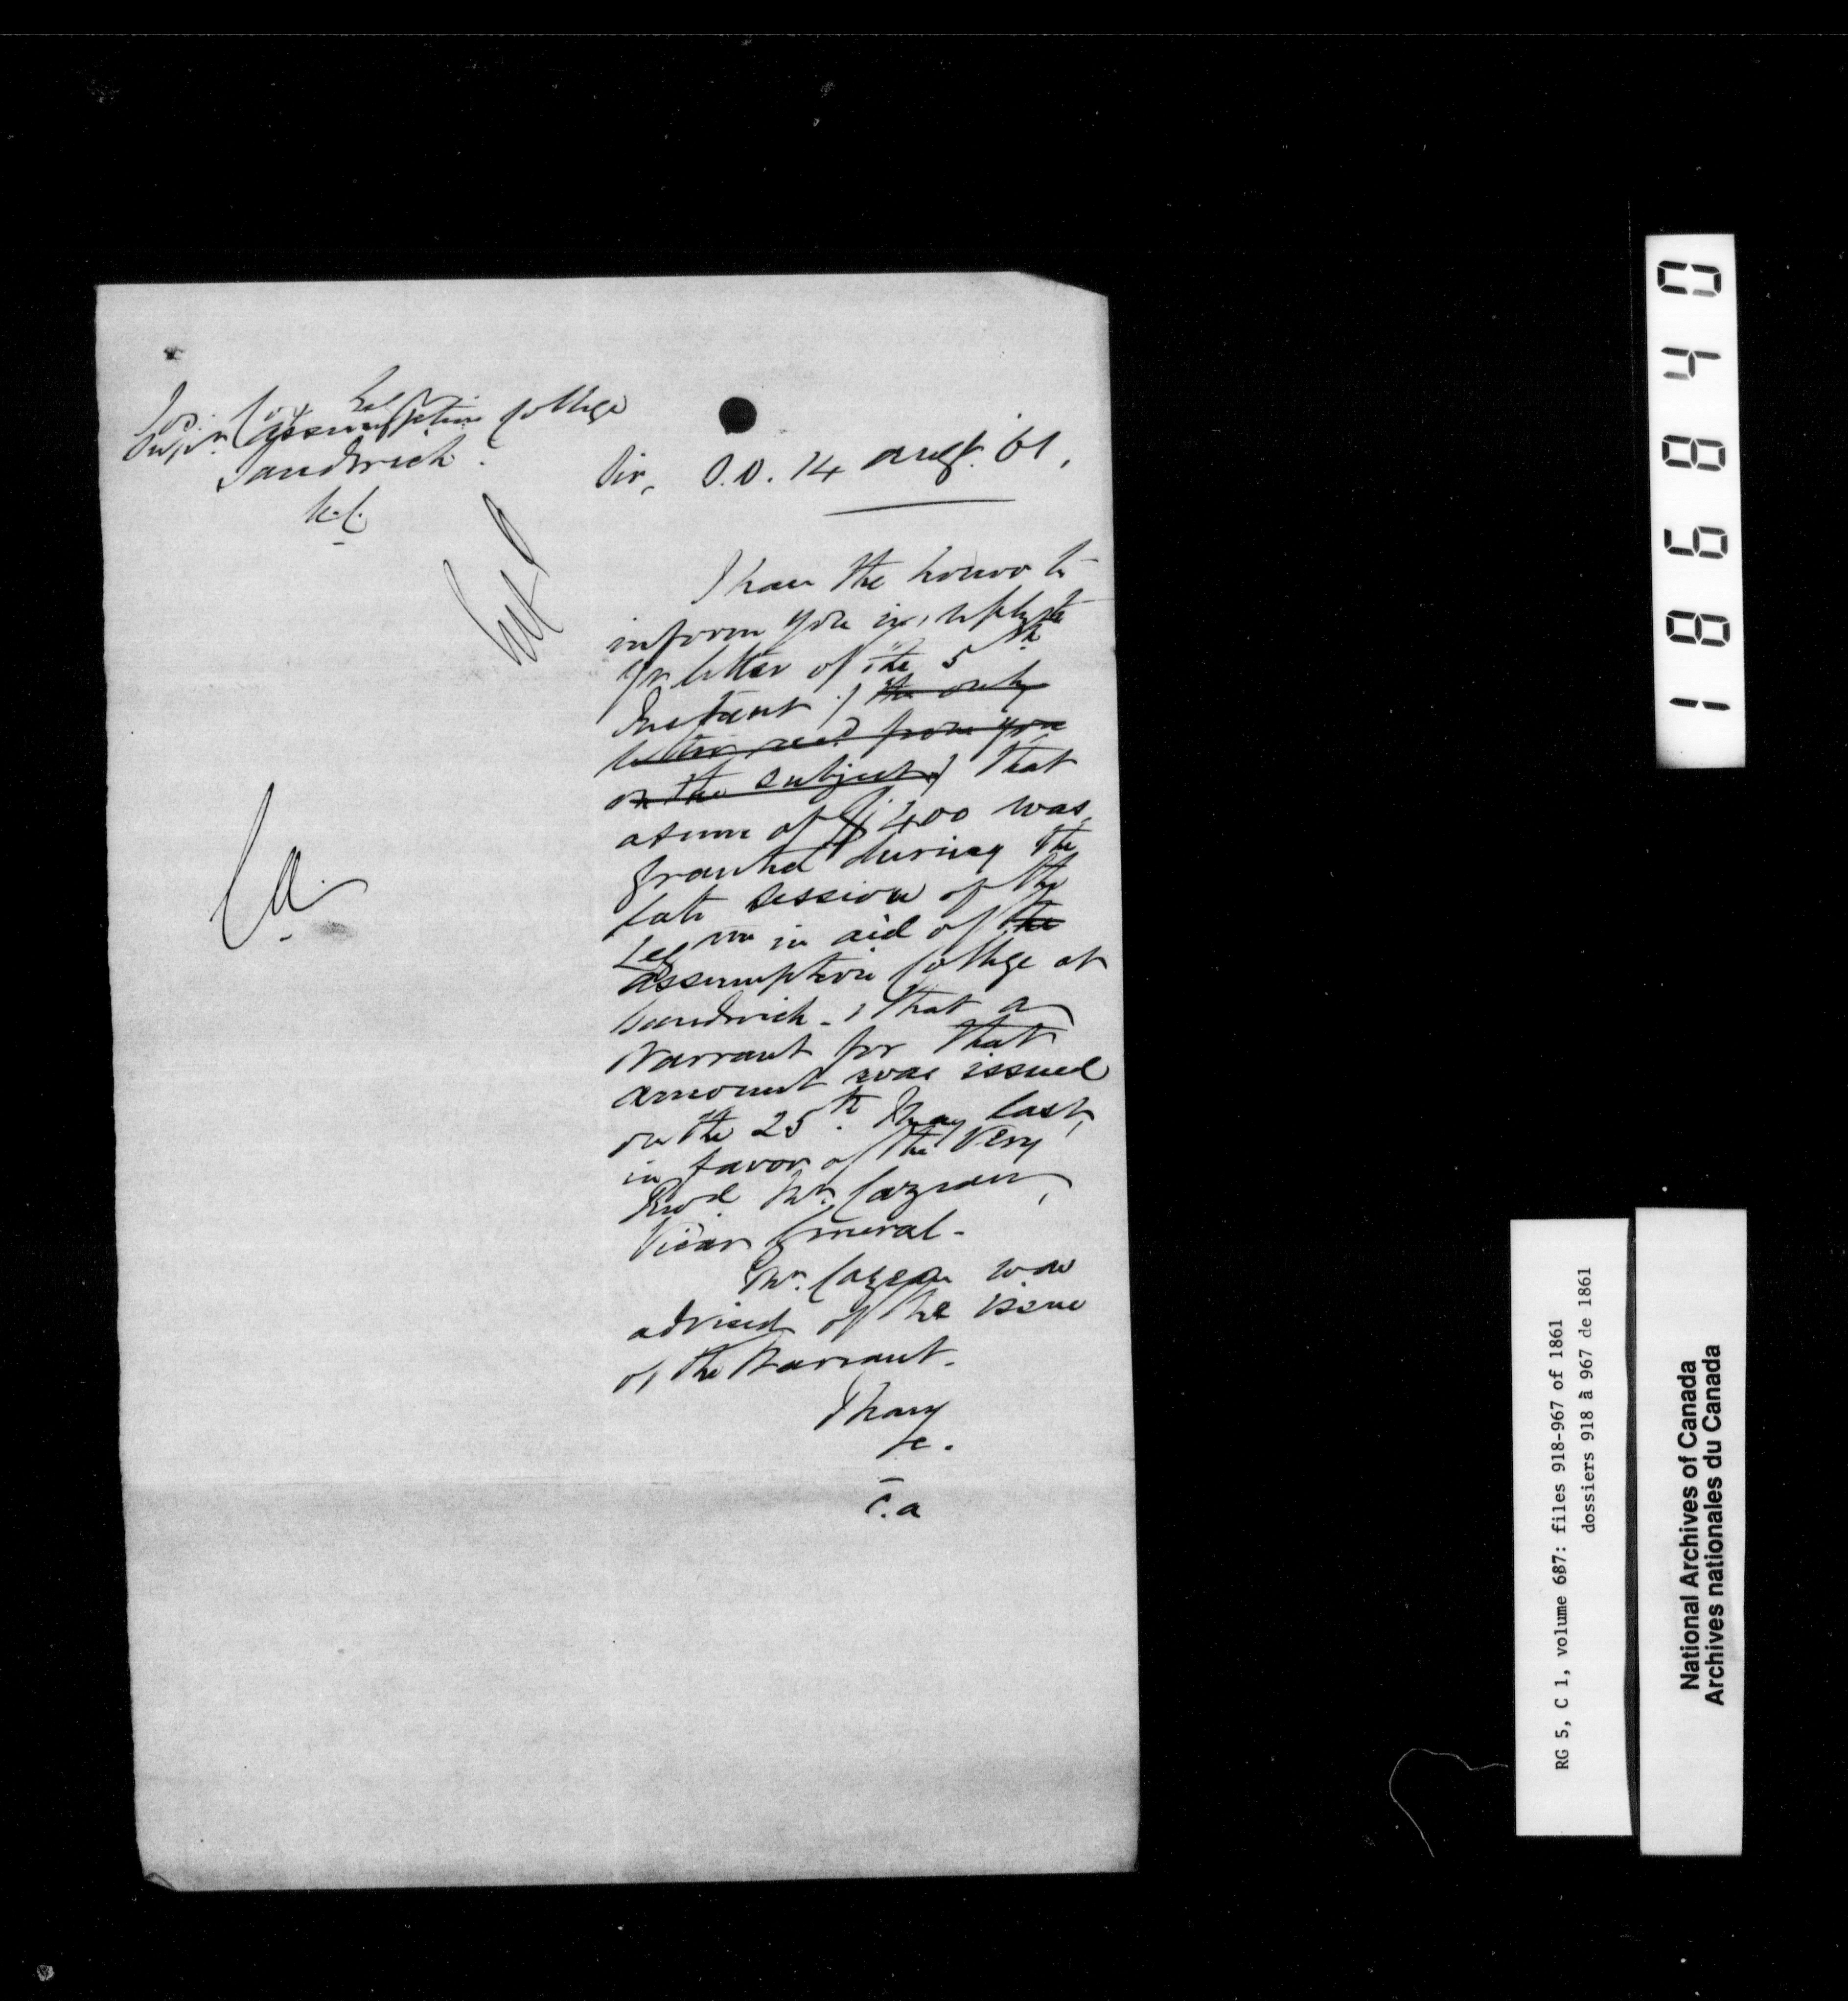 Assumption College
Sandwich.
Sir, S.O. 14 Augt. 61.
I have the honor to
inform you in reply to
yr letter of the 5th
Instant, (the only
letter recd from you
on the subject) that
a sum of $1400 was
granted during the
late Session of the
Leg re in aid of the
Assumption College at
Sandwich - & that a
Warrant for that
amount was issued
on the 25th May last,
in favor of the Very
Revd Mr. Cazeau,
Vicar General -
Mr. Cazeau was
advised of the issue
of the Warrant.
I have
&c.
C.A
C A
186840
RG 5, C 1, volume 687: files 918-967 of 1861
dossiers 918 à 967 de 1861
National Archives of Canada
Archives nationales du Canada